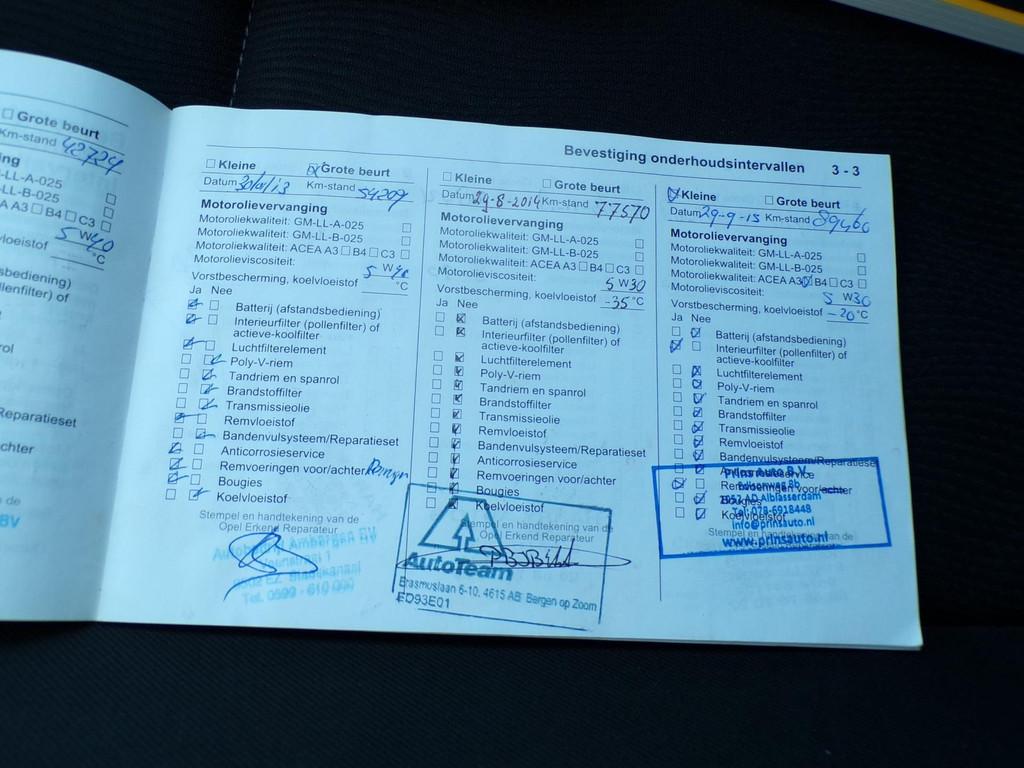 Grote beurt
Km-stand 42724
ng
-LL-A-025
-LL-B-025
A A3 B4 C3
vloeistof 5 W40
°C
sbediening)
llenfilter) of
rol
Reparatieset
achter
de
BV
Bevestiging onderhoudsintervallen 3 - 3
Kleine Grote beurt
Datum Km-stand 54209
Motorolievervanging
Motoroliekwaliteit: GM-LL-A-025
Motoroliekwaliteit: GM-LL-B-025
Motoroliekwaliteit: ACEA A3 B4 C3
Motorolieviscositeit: 5 W40
Vorstbescherming, koelvloeistof °C
Ja Nee
Batterij (afstandsbediening)
Interieurfilter (pollenfilter) of
actieve-koolfilter
Luchtfilterelement
Poly-V-riem
Tandriem en spanrol
Brandstoffilter
Transmissieolie
Remvloeistof
Bandenvulsysteem/Reparatieset
Anticorrosieservice
Remvoeringen voor/achter
Bougies
Koelvloeistof
Stempel en handtekening van de
Opel Erkend Reparateur
Tel. 0599 - 610 000
Kleine Grote beurt
Datum 29-8-2014 Km-stand 77570
Motorolievervanging
Motoroliekwaliteit: GM-LL-A-025
Motoroliekwaliteit: GM-LL-B-025
Motoroliekwaliteit: ACEA A3 B4 C3
Motorolieviscositeit: 5 W30
Vorstbescherming, koelvloeistof -35 °C
Ja Nee
Batterij (afstandsbediening)
Interieurfilter (pollenfilter) of
actieve-koolfilter
Luchtfilterelement
Poly-V-riem
Tandriem en spanrol
Brandstoffilter
Transmissieolie
Remvloeistof
Bandenvulsysteem/Reparatieset
Anticorrosieservice
Remvoeringen voor/achter
Bougies
Koelvloeistof
Stempel en handtekening van de
Opel Erkend Reparateur
AutoTeam
Erasmuslaan 6-10, 4615 AB Bergen op Zoom
ED93E01
Kleine Grote beurt
Datum 29-9-15 Km-stand 89460
Motorolievervanging
Motoroliekwaliteit: GM-LL-A-025
Motoroliekwaliteit: GM-LL-B-025
Motoroliekwaliteit: ACEA A3 B4 C3
Motorolieviscositeit: 5 W30
Vorstbescherming, koelvloeistof -20 °C
Ja Nee
Batterij (afstandsbediening)
Interieurfilter (pollenfilter) of
actieve-koolfilter
Luchtfilterelement
Poly-V-riem
Tandriem en spanrol
Brandstoffilter
Transmissieolie
Remvloeistof
Bandenvulsysteem/Reparatieset
Anticorrosieservice
Remvoeringen voor/achter
Bougies
Koelvloeistof
Stempel en handtekening van de
Prins Auto B.V.
Edisonweg 8b
2952 AD Alblasserdam
Tel: 078-6918448
info@prinsauto.nl
www.prinsauto.nl